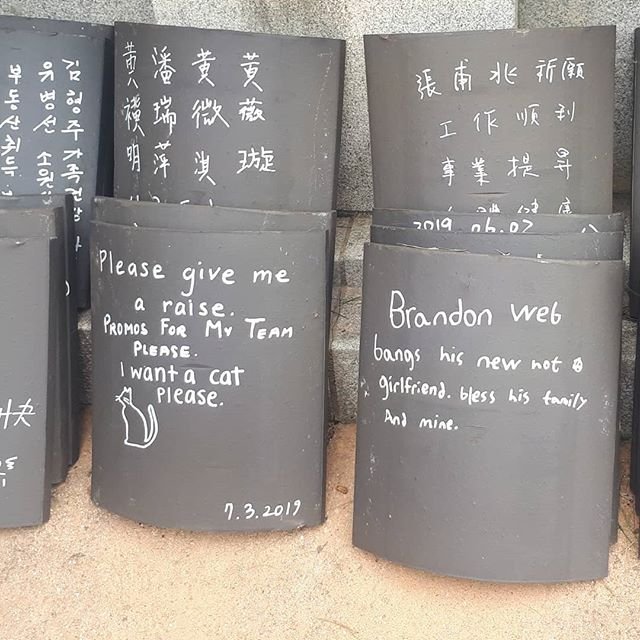 김형주 가족건강
유병선 소원
부동산취득
黃 潘 黃 黃
穙 瑞 微 薇
明 萍 淇 璇
張甫兆 祈願
工作順利
事業提昇
2019.06.03
Please give me
a raise.
PROMOS FOR MY TEAM
PLEASE.
I want a cat
please.
7.3.2019
Brandon Web
bangs his new hot
girlfriend. bless his family
And mine.